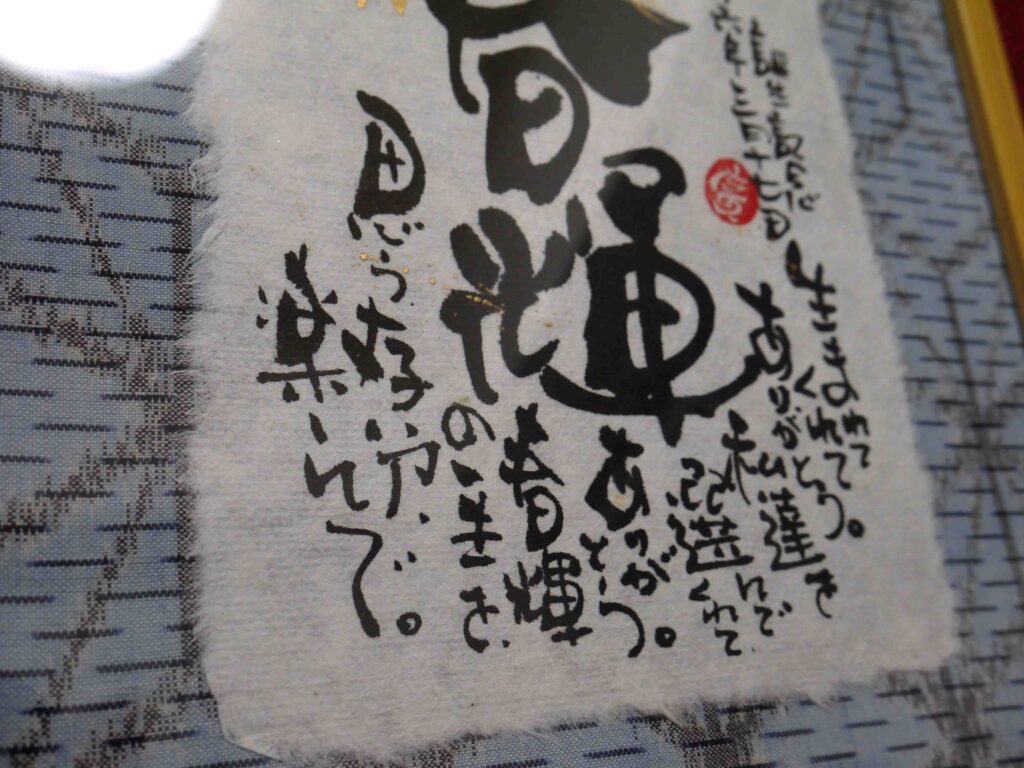 誕生記念
六年三月十七日
春輝
生まれて
くれて
ありがとう。
私達を
選んで
くれて
ありがとう。
春輝
の人生を
思う存分、
楽しんで。